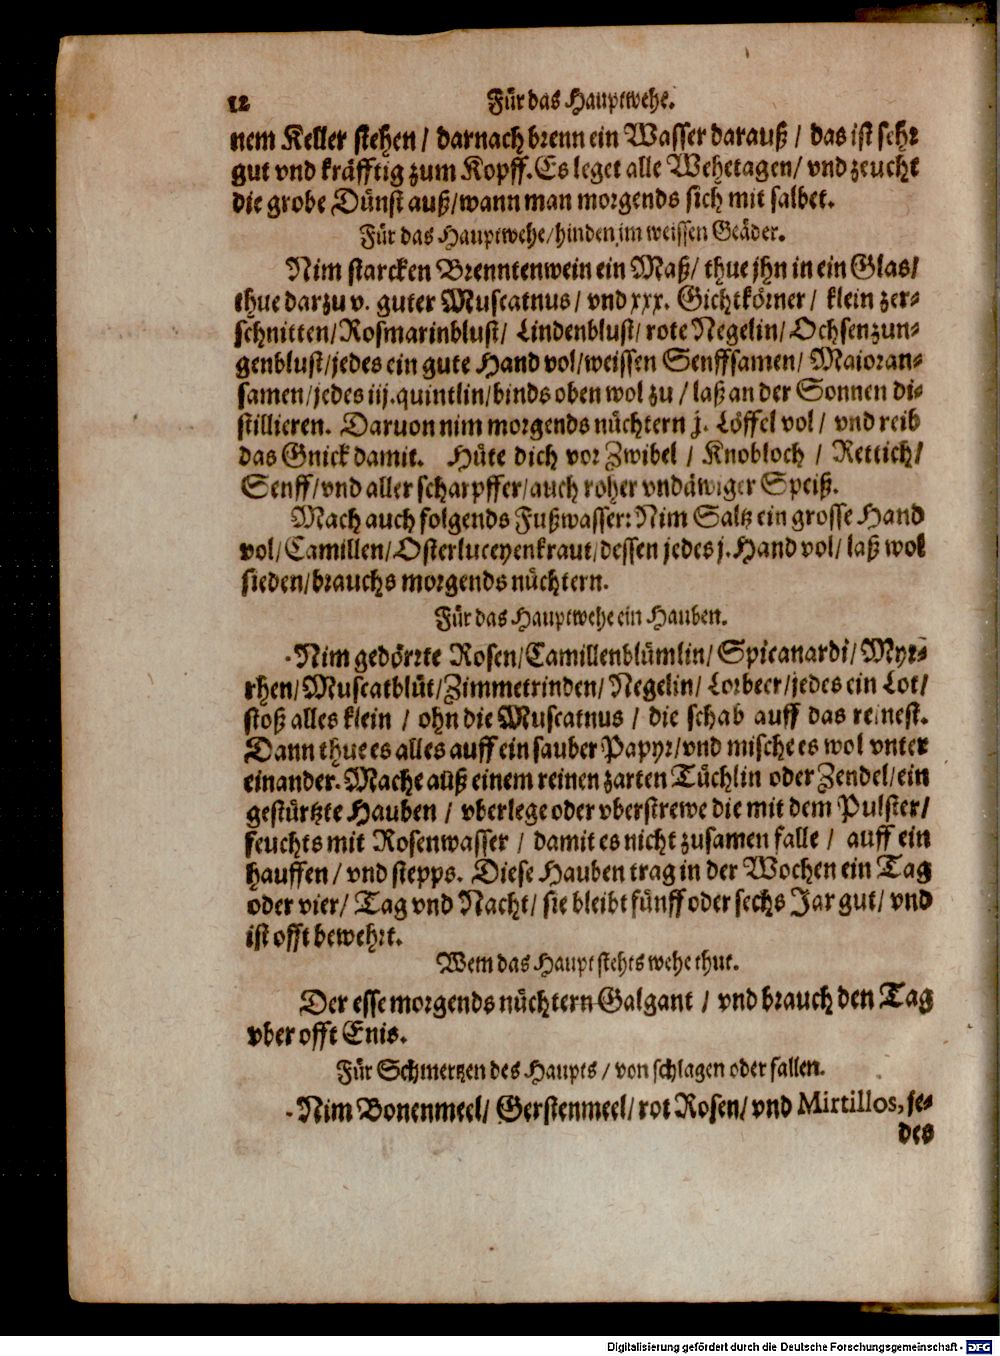 12 Für das Hauptwehe.
nem Keller stehen / darnach brenn ein Wasser darauß / das ist sehr
gut vnd kräfftig zum Kopff. Es leget alle Wehetagen / vnd zeucht
die grobe Dünst auß / wann man morgends sich mit salbet.
Für das Hauptwehe / hinden im weissen Geäder.
Nim starcken Brenntenwein ein Maß / thue jhn in ein Glas /
thue darzu v. guter Muscatnus / vnd xxx. Gichtkörner / klein zer-
schnitten / Rosmarinblust / Lindenblust / rote Negelin / Ochsenzun-
genblust / jedes ein gute Hand vol / weissen Senffsamen / Maioran-
samen / jedes iij. quintlin / binds oben wol zu / laß an der Sonnen di-
stillieren. Daruon nim morgends nüchtern j. Löffel vol / vnd reib
das Gnick damit. Hüte dich vor Zwibel / Knobloch / Rettich /
Senff / vnd aller scharpffer / auch roher vndäwiger Speiß.
Mach auch folgends Fußwasser: Nim Saltz ein grosse Hand
vol / Camillen / Osterluceyenkraut / dessen jedes j. Hand vol / laß wol
sieden / brauchs morgends nüchtern.
Für das Hauptwehe ein Hauben.
Nim gedörrte Rosen / Camillenblümlin / Spicanardi / Myr-
rhen / Muscatblüt / Zimmetrinden / Negelin / Lorbeer / jedes ein Lot /
stoß alles klein / ohn die Muscatnus / die schab auff das reinest.
Dann thue es alles auff ein sauber Papyr / vnd mische es wol vnter
einander. Mache auß einem reinen zarten Tüchlin oder Zendel / ein
gestürtzte Hauben / vberlege oder vberstrewe die mit dem Pulster /
feuchts mit Rosenwasser / damit es nicht zusamen falle / auff ein
hauffen / vnd stepps. Diese Hauben trag in der Wochen ein Tag
oder vier / Tag vnd Nacht / sie bleibt fünff oder sechs Jar gut / vnd
ist offt bewehrt.
Wem das Haupt stehts wehe thut.
Der esse morgends nüchtern Galgant / vnd brauch den Tag
vber offt Enis.
Für Schmertzen des Haupts / von schlagen oder fallen.
Nim Bonenmeel / Gerstenmeel / rot Rosen / vnd Mirtillos, je-
des
Digitalisierung gefördert durch die Deutsche Forschungsgemeinschaft - DFG